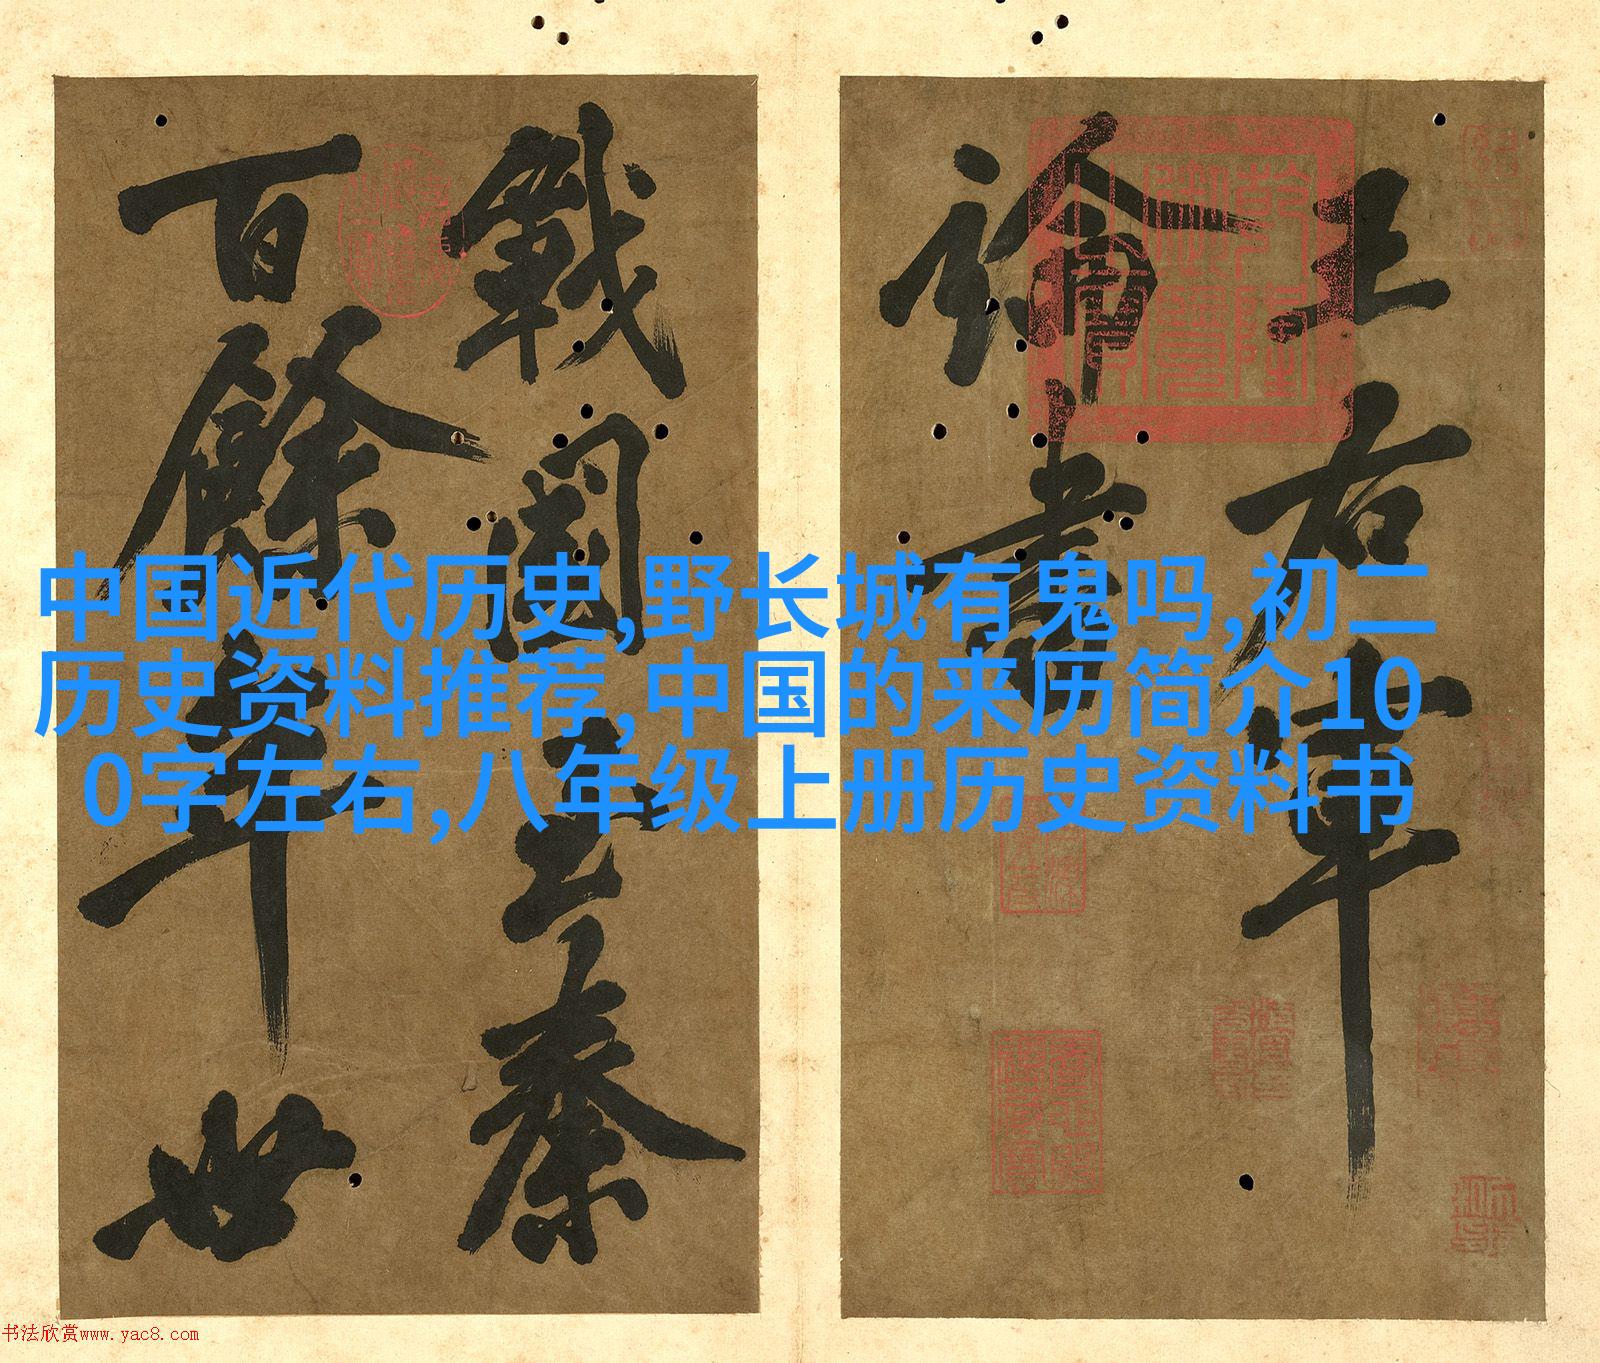 王右軍
論書
戰國至秦
百餘年世
乾隆御覽之寶
中国近代历史,野长城有鬼吗,初二
历史资料推荐,中国的来历简介10
0字左右,八年级上册历史资料书
书法欣赏www.yac8.com